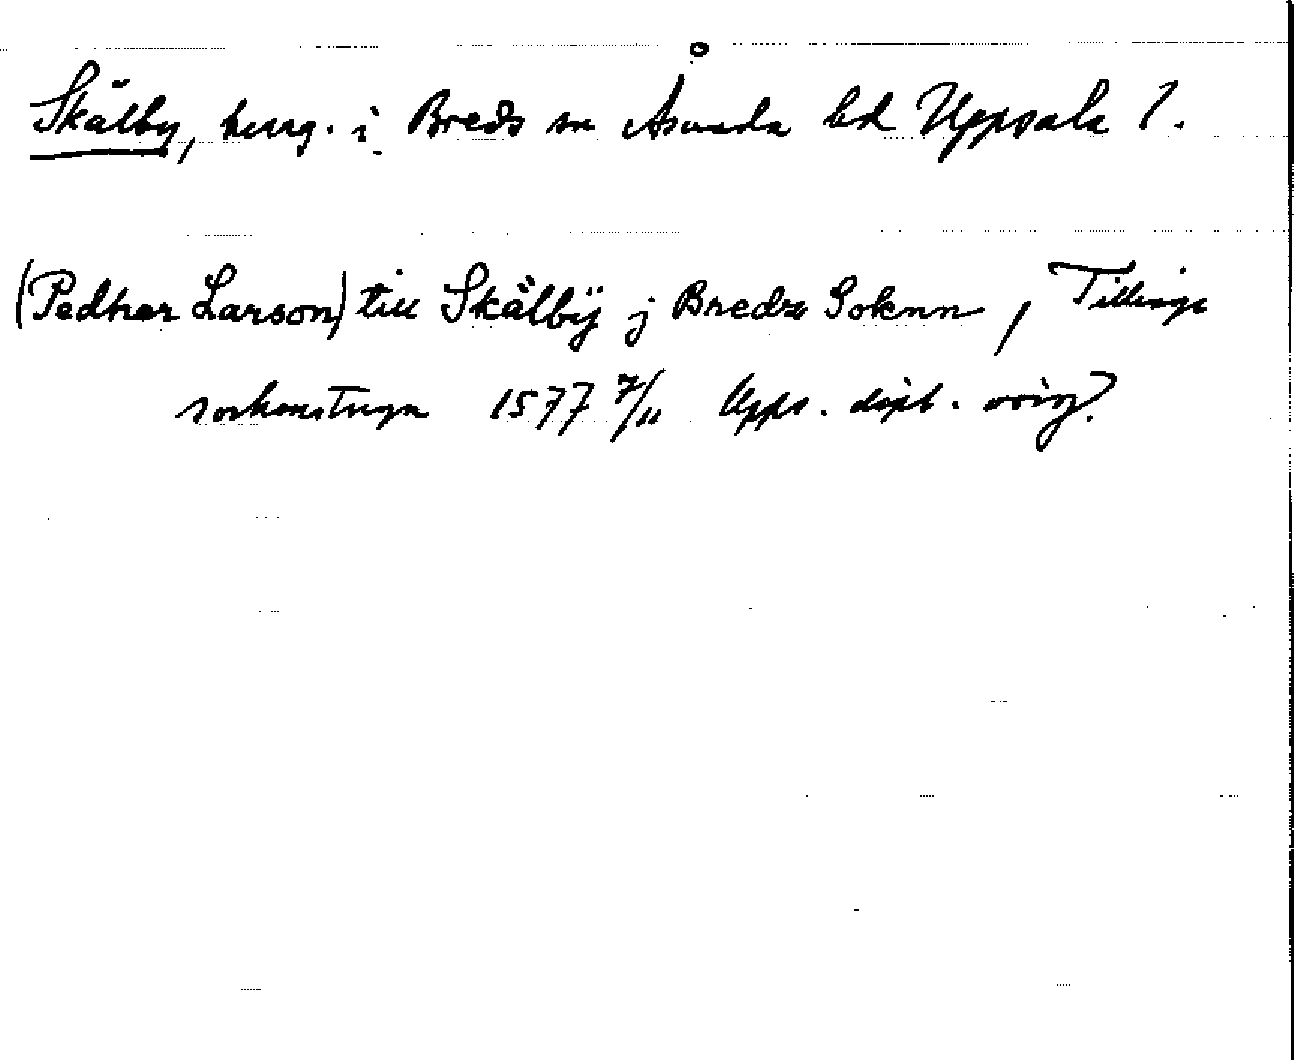 Skälby, herrg. i Breds sn Åsunda hd Uppsala l.
(Pedher Larson) till Skälbÿ j Bredz Soknn, Tillinge
sockenstuga 1577 7/11 Upps. dipl. orig.